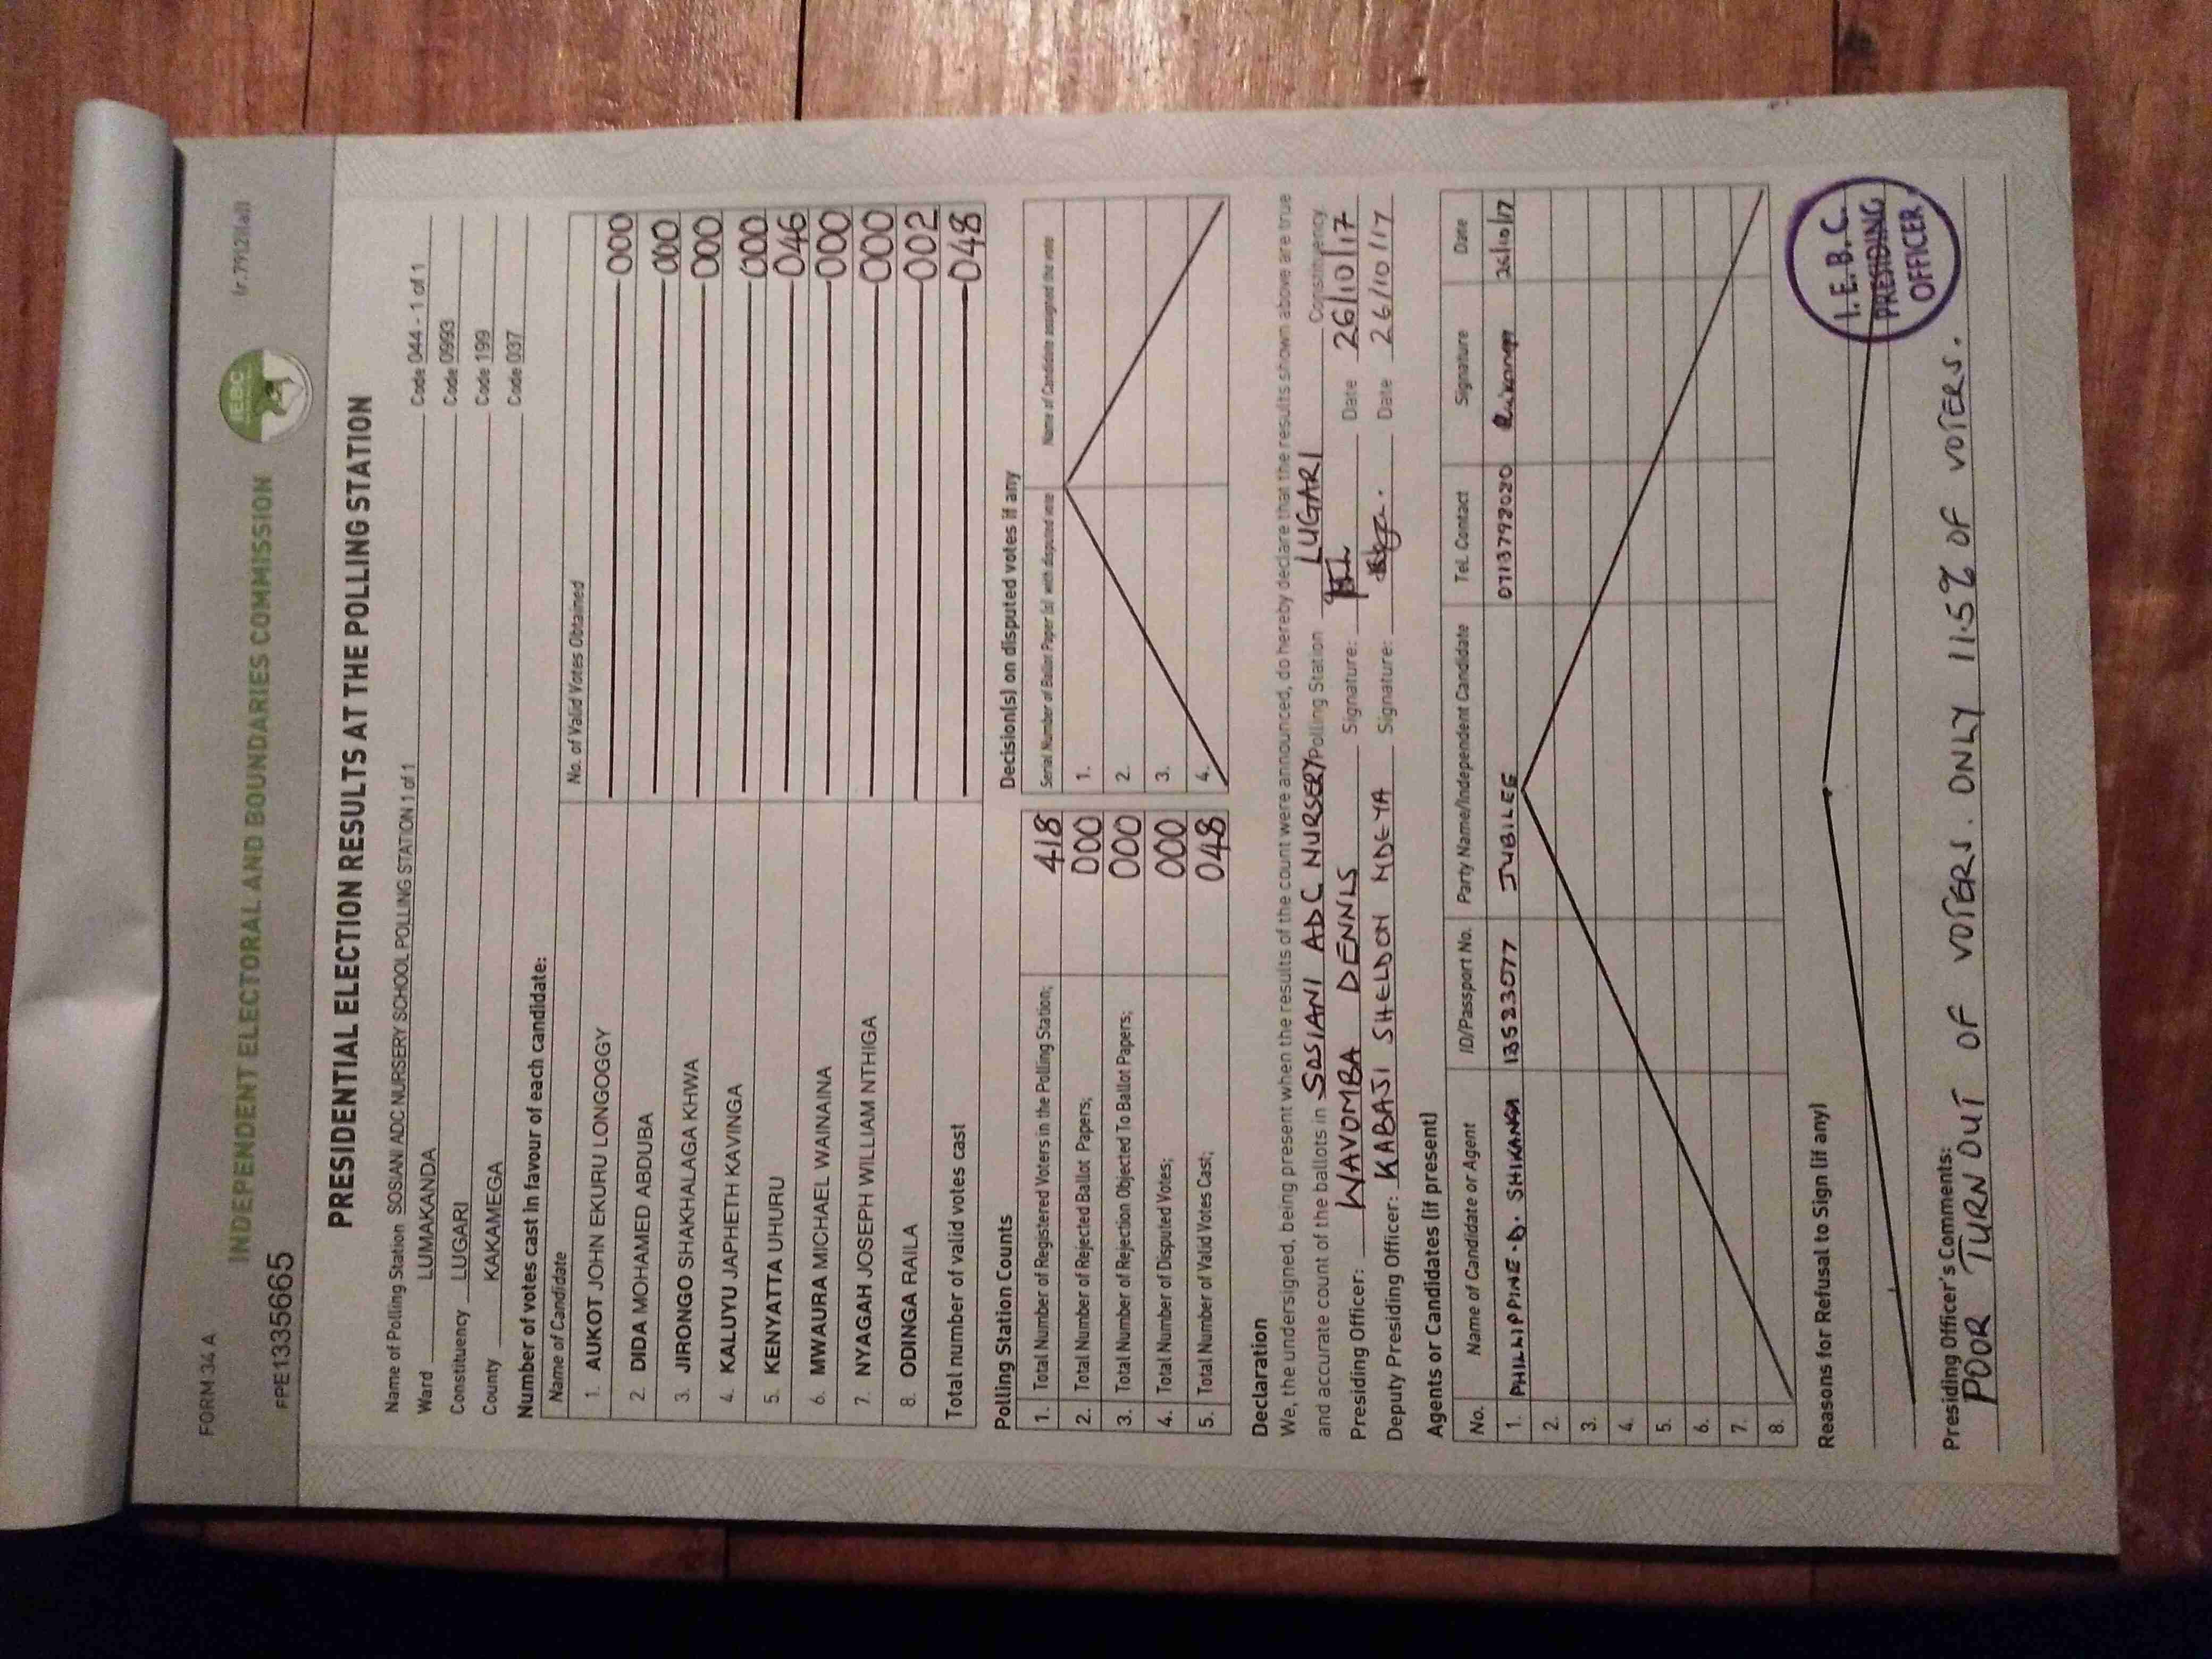 FORM 34 A
(r.79(2)(a))
IEBC
INDEPENDENT ELECTORAL AND BOUNDARIES COMMISSION
PRESIDENTIAL ELECTION RESULTS AT THE POLLING STATION
Name of Polling Station SOSIANI ADC NURSERY SCHOOL POLLING STATION 1 of 1 Code 044 - 1 of 1
Ward LUMAKANDA Code 0993
Constituency LUGARI Code 199
County KAKAMEGA Code 037
Number of votes cast in favour of each candidate:
Name of Candidate No. of Valid Votes Obtained
1. AUKOT JOHN EKURU LONGOGGY 000
2. DIDA MOHAMED ABDUBA 000
3. JIRONGO SHAKHALAGA KHWA 000
4. KALUYU JAPHETH KAVINGA 000
5. KENYATTA UHURU 046
6. MWAURA MICHAEL WAINAINA 000
7. NYAGAH JOSEPH WILLIAM NTHIGA 000
8. ODINGA RAILA 002
Total number of valid votes cast 048
Polling Station Counts
1. Total Number of Registered Voters in the Polling Station; 418
2. Total Number of Rejected Ballot Papers; 000
3. Total Number of Rejection Objected To Ballot Papers; 000
4. Total Number of Disputed Votes; 000
5. Total Number of Valid Votes Cast; 048
Decision(s) on disputed votes if any
Serial Number of Ballot Paper (s) with disputed vote Name of Candidate assigned the vote
1.
2.
3.
4.
Declaration
We, the undersigned, being present when the results of the count were announced, do hereby declare that the results shown above are true
and accurate count of the ballots in SOSIANI ADC NURSERY Polling Station LUGARI Constituency.
Presiding Officer: WAVOMBA DENNIS Signature: Date 26/10/17
Deputy Presiding Officer: KABAJI SHELDON MDEYA Signature: Date 26/10/17
Agents or Candidates (if present)
No. Name of Candidate or Agent ID/Passport No. Party Name/Independent Candidate Tel. Contact Signature Date
1. PHILLIPPINE .D. SHIKANGA 13523077 JUBILEE 0713792020 26/10/17
2.
3.
4.
5.
6.
7.
8.
Reasons for Refusal to Sign (if any)
I.E.B.C.
PRESIDING
OFFICER
Presiding Officer's Comments:
POOR TURN OUT OF VOTERS. ONLY 11.5% OF VOTERS.